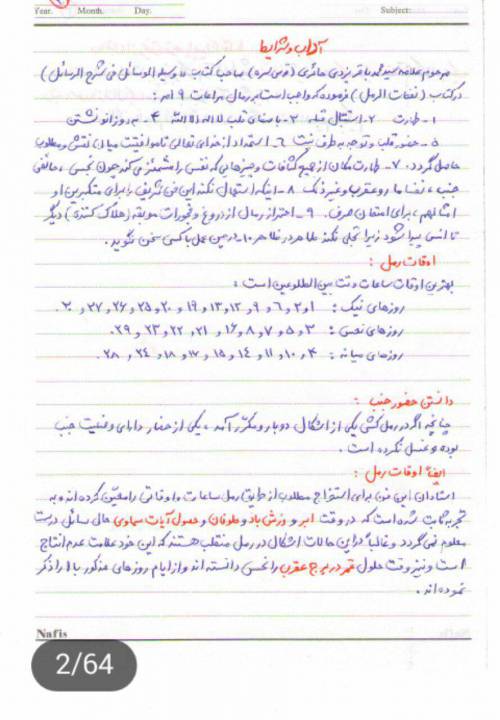 Year. Month. Day. Subject:
آداب و شرایط
مرحوم علامه سید محمد باقر یزدی حائری (قدس سره) صاحب کتاب (وسیلة الوسائل فی شرح الرسائل)
در کتاب (نفحات الرمل) فرموده که واجب است بر رمال مراعات ۹ امر:
۱- طهارت ۲- استقبال قبله ۳- با صفای قلب لا اله الا الله ۴- به روزانو نشستن
۵- حضور قلب و توجه به طرف نیت ۶- استمداد از خدای تعالی تا موافقت میان نقش و مطلوب
حاصل گردد. ۷- طهارت مکان از جمیع کثافات و چیزهایی که نفس را مشمئز می‌کند چون نجس، حائض
جنب، نفسا، مار و عقرب و غیر ذلک ۸- اینکه استعمال نکند این فن شریف را برای متکبرین و
امثالهم، برای امتحان صرف. ۹- احتراز رمال از دروغ و فجورات موبقه (هلاک کننده) دیگر
تا انس پیدا شود زیرا تجلی نکند طاهر در غیر طاهر ۱۰- در حین عمل با کسی سخن نگوید.
اوقات رمل:
بهترین اوقات ساعات وقت بین الطلوعین است:
روزهای نیک: ۱ و ۲ و ۶ و ۹ و ۱۲ و ۱۳ و ۱۹ و ۲۰ و ۲۵ و ۲۶ و ۲۷ و ۳۰.
روزهای نحس: ۳ و ۵ و ۷ و ۸ و ۱۶ و ۲۱، ۲۲ و ۲۳ و ۲۹.
روزهای میانه: ۴ و ۱۰ و ۱۱ و ۱۴ و ۱۵ و ۱۷ و ۱۸ و ۲۴ و ۲۸.
دانستن حضور جنب:
چنانچه اگر در رمل کشی یکی از اشکال دوبار و مکرر آمد، یکی از حضار دارای وضعیت جنب
بوده و غسل نکرده است.
ایضاً اوقات رمل:
استادان این فن برای استخراج مطلوب از طریق رمل ساعات و اوقاتی را معین کرده‌اند و به
تجربه ثابت شده است که در وقت ابر و وزش باد و طوفان و حصول آیات سماوی حال سائل درست
معلوم نمی گردد و غالباً در این حالات اشکال در رمل منقلب هستند که این خود علامت عدم انتاج
است و نیز وقت حلول قمر در برج عقرب را نحس دانسته اند و از ایام روزهای مذکور بالا را ذکر
نموده‌اند.
Nafis
2/64